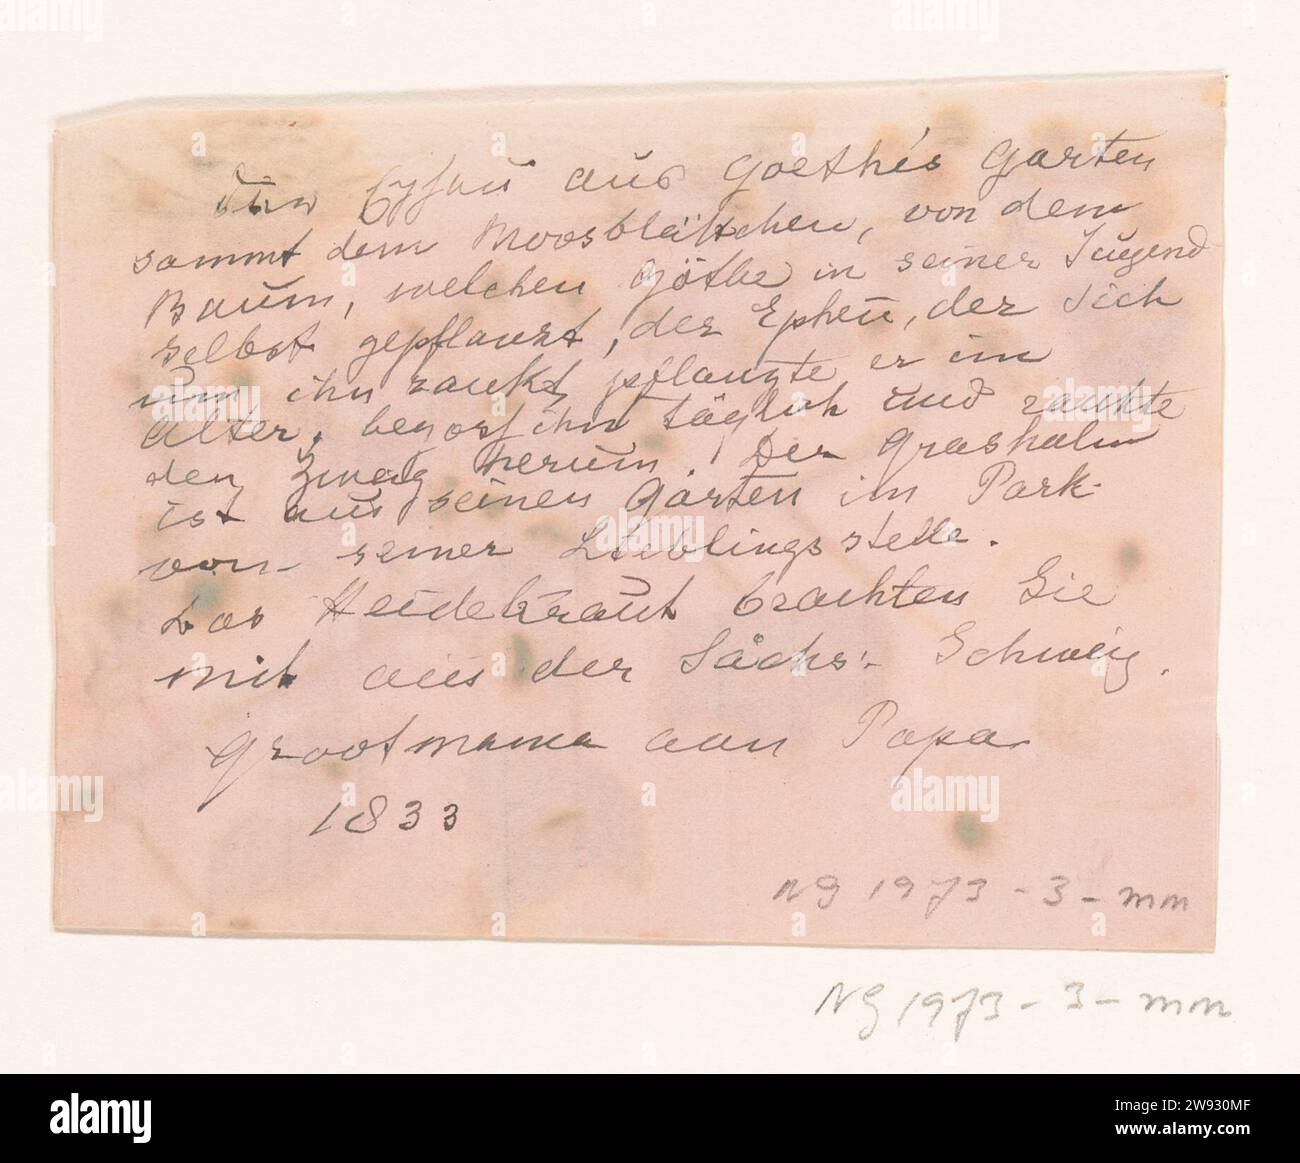 Den Epheu aus Goethe's Garten
sammt dem Moosblättchen, von dem
Baum, welchen Göthe in seiner Jugend
selbst gepflanzt, der Epheu, der sich
um ihn rankt, pflanzte er im
Alter, begoss ihn täglich und rankte
den Zweig herum. Der Grashalm
ist aus seinen Garten im Park
von seiner Lieblingsstelle.
Das Heidekraut brachten Sie
mit aus der Sächs:- Schweiz.
Grootmama aan Papa
1833
NG 1973-3-mm
NG 1973-3-mm
alamy
Image ID: 2W930MF
www.alamy.com